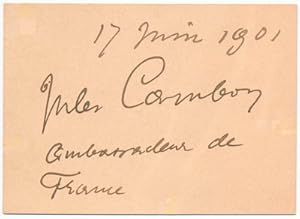 17 Juin 1901
Jules Cambon
ambassadeur de
France